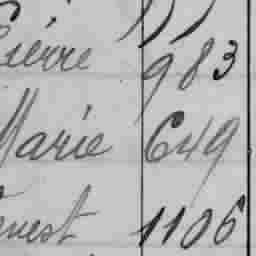 Pierre 983
Marie 649
Ernest 1106